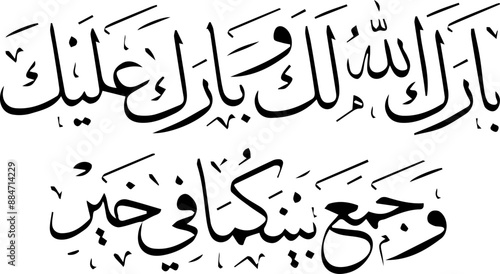 بارك الله لك و بارك عليك
وجمع بينكما في خير
Adobe Stock | #884714229